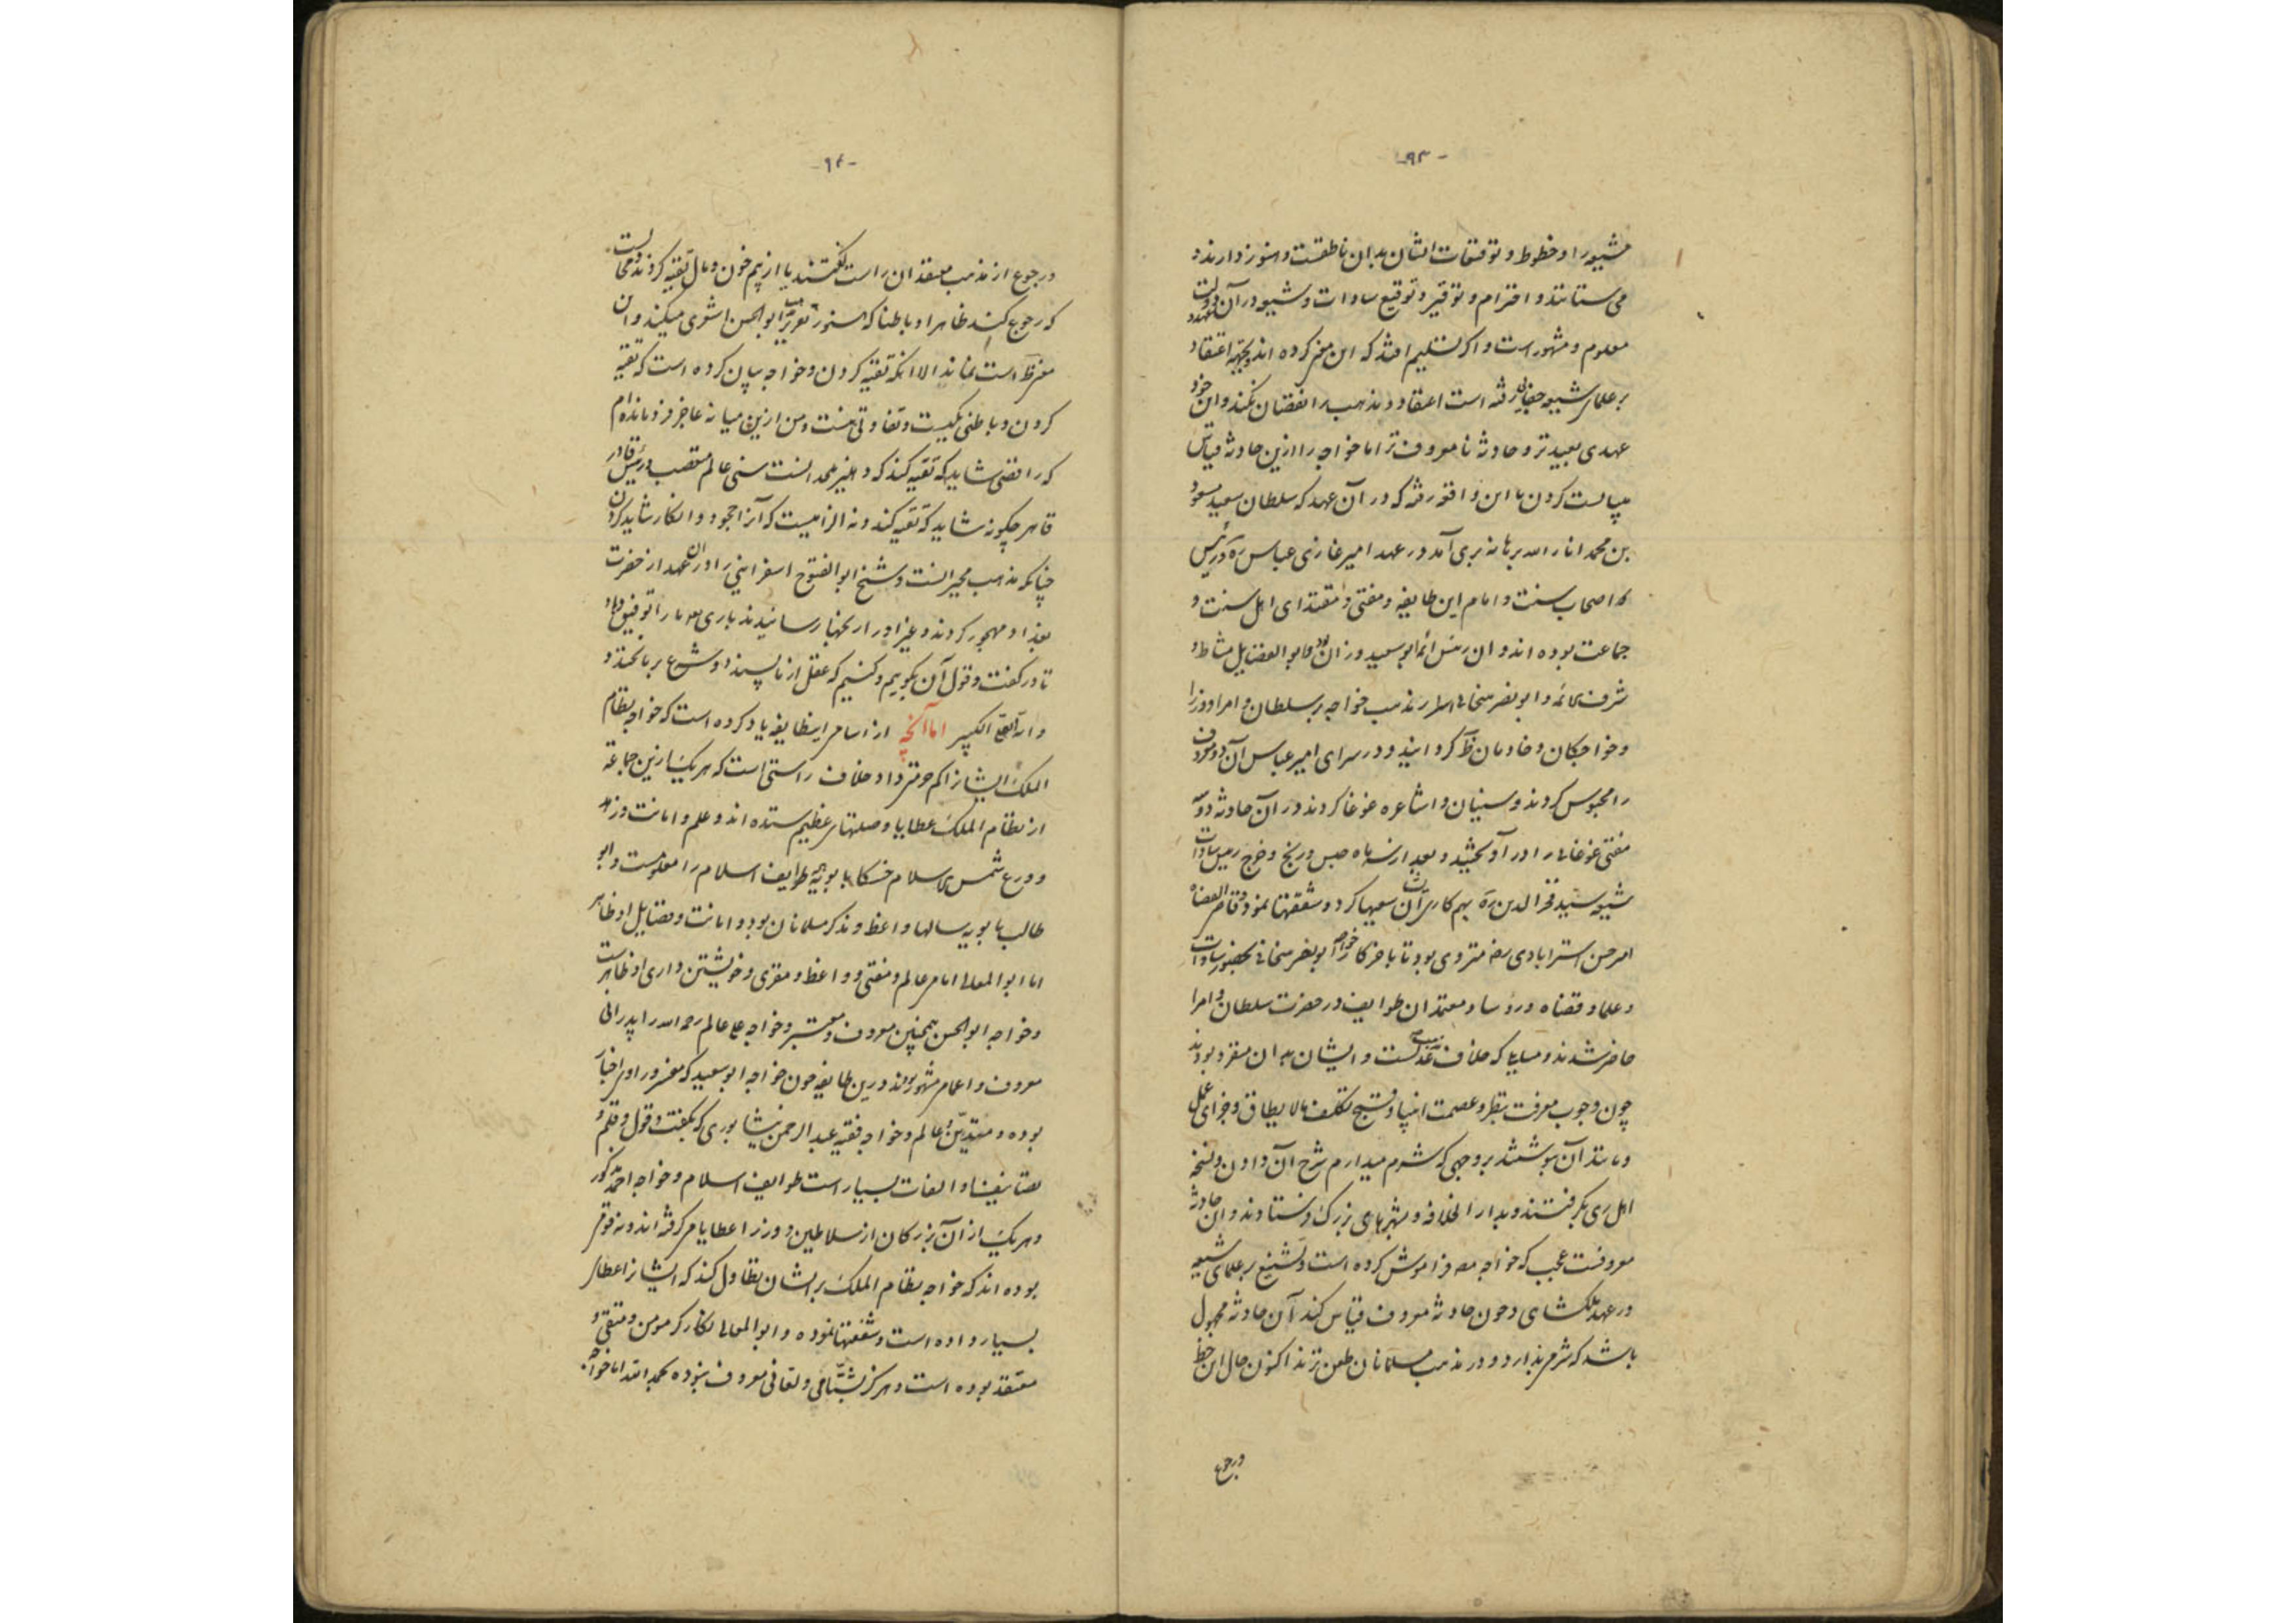 -۹۳-
شیعه را و خطوط و توقیعات ایشان بدان ناطقست و هنوز دارند و
می ستانند و احترام و توقیر و توقیع سادات و شیعه در آن دولت
معلوم و مشهور است و اگر تسلیم افتد که این معنی کرده اند و بجهة اعتقاد
بر علمای شیعه جفایی رفته است اعتقاد و مذهب را نقصان نکند و این خود
عهدی بعیدتر و حادثه نا معروف تر اما خواجه را ازین حادثه قیاس
میبایست کردن با این واقعه رفته که در آن عهد که سلطان سعید مسعود
بن محمد انار الله برهانه بری آمد در عهد امیر غازی عباس ره و رئیس
اصحاب سنت و امام این طایفه و مفتی و مقتدای اهل سنت و
جماعت بوده اند و ان رئیس ائمه ابو سعید وزان بود و ابو الفضایل مشاط و
شرف ائمه و ابو نصر هسنجانی اسرار مذهب خواجه بر سلطان و امرا و وزرا
و خواجگان و خادمان ظَ گردانیدند و در سرای امیر عباس آن دو معروف
را محبوس کردند و سنیان و اشاعره غوغا کردند در آن حادثه دو سه
مفتی غوغائی را در آویختند و بعد از سه ماه حبس و رنج و خرج رئیس سادات
شیعه سید فخر الدین ره بهم کاری آن سعیها کرد و شفقتها نمود و قاضی القضاة
امیر حسن استرابادی رضه متروی بود تا باخر کار خواجه ابو نصر هسنجانی بحضور سادات
و علما و قضاة و رؤسا و معتمدان طوایف در حضرت سلطان و امرا
حاضر شدند و مسایلی که خلاف مذهب عدلست و ایشان بدان مقر بودند
چون وجوب معرفت بنظر و عصمت انبیا و قبح تکلیف مالا یطاق و جزای عمل
و مانند آن بنوشتند بر وجهی که شرم میدارم شرح آن دادن و نسخه
اهل ری بگرفتند و بدار الخلافه و بشهرهای بزرگ فرستادند و این حادثه
معروفست عجب که خواجه مصـ فراموش کرده است و تشنیع بر علمای شیعه
در عهد ملکشاهی و چون حادثه معروف قیاس کند آن حادثه مجهول
باشد که شرم بدارد و در مذهب مسلمانان طعن نزند اکنون حال این خط
و رجوع
-۹۴-
و رجوع از مذهب معتقد ان راست گفتند یا از بیم خون و مال تقیه کردند و محالست
که رجوع کنند ظاهرا و باطنا که هنوز تعزیت ابو الحسن اشعری میکنند و ان
مغرظَ است نماند الا انکه تقیه کردن و خواجه بیان کرده است که تقیه
کردن و باطنی یکیست و تفاوتی نیست و من ازین میانه عاجز فرو مانده ام
که رافضی شاید که تقیه کند که دهلیز ملحدانست سنی عالم متعصب و رئیس قادر
قاهر چگونه شاید که تقیه کند و نه الزامیست که آنرا جحود و انکار شاید کردن
چنانکه مذهب مجبرانست و شیخ ابو الفتوح اسفراینی را در ان عهد از حضرت
بغداد مهجور کردند و غیر او را رنجها رسانیدند باری بعد ما را توفیق دهاد
تا در گفت و قول آن بگوییم و کنیم که عقل از نا پسندد و شرع بر ما نخندد
و انه العلی الکبیر اما آنچه از اسامی اینطایفه یاد کرده است که خواجه نظام
الملک ایشانرا کم حرمتی داد خلاف راستی است که هر یک ازین جماعة
از نظام الملک عطایا و صلتهای عظیم ستده اند و علم و امانت و زهد
و ورع شمس الاسلام حسکا بابویه همه طوایف اسلام را معلومست و ابو
طالب بابویه سالها واعظ و مذکر مسلمانان بود و امانت و فضایل او ظاهر
اما ابو المعالی امامی عالم و مفتی و واعظ و مقری و خویشتن داری او ظاهرست
و خواجه ابو الحسن همچنین معروف و معتبر و خواجه علی عالم رحمه الله را پدرانی
معروف و اعمام مشهور بودند درین طایفه چون خواجه ابو سعید که مفسر و راوی اخبار
بوده و متدین و عالم و خواجه فقیه عبد الرحمن نیشابوری که بگفت و قول و قلم و
تصانیف او التفات بسیار است طوایف اسلام و خواجه احمد مذکور
و هر یک از آن بزرگان از سلاطین و وزرا عطایا می گرفته اند و نه فقیر
بوده اند که خواجه نظام الملک بر ایشان تطاول کند که ایشانرا عطای
بسیار داده است و شفقتها نموده و ابو المعالی نکارکر مومن و متقی و
معتقد بوده است و هرگز بشتامی و لعانی معروف نبوده بحمد الله اما خواجه